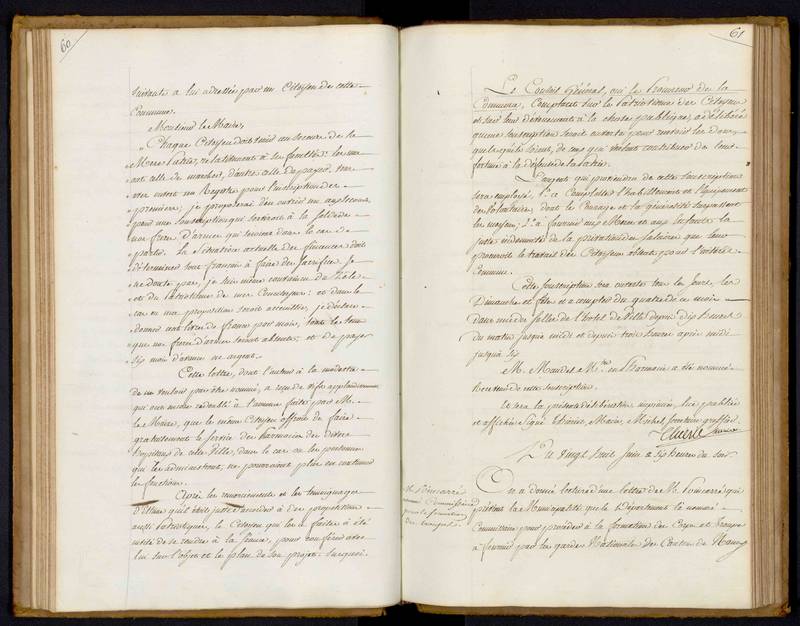 60
suivante a lui adressée par un Citoyen de cette
Commune.
Monsieur le Maire,
« Chaque Citoyen doit venir au secours de la
« Mere Patrie, relativement à ses facultés: les uns
« ont celle de marcher, d'autres celle de payer. Vous
« avez ouvert un Registre pour l'inscription des
« premiers; je propose d'en ouvrir un aux seconds,
« pour une souscription qui serviroit à la solde de
« nos freres d'armes qui seroient dans le cas de
« partir. La situation actuelle des finances doit
« déterminer tout français à faire des sacrifices. Je
« ne doute pas, je suis même convaincu du Zele
« et du Patriotisme de mes Concitoyens: et dans le
« cas où ma proposition seroit accueillie, je déclare
« donner cent livres de france par mois, tout le tems
« que nos freres d'armes seront absents, et de payer
« six mois d'avance en argent.
Cette lettre, dont l'auteur a la modestie
de ne vouloir pas être nommé, a reçu de vifs applaudissemens
qui ont encore redoublé à l'annonce faite par M.
le Maire, que le même Citoyen offroit de faire
gratuitement le service des Pharmacies des divers
hopitaux de cette Ville, dans le cas où les personnes
qui les administrent, ne pourroient plus en continuer
les fonctions.
Après les remerciements et les témoignages
d'Estime qu'il étoit juste d'accorder à des propositions
aussi patriotiques, le Citoyen qui les a faites a été
invité de se rendre à la séance, pour conférer avec
lui sur l'objet et le plan de son projet. Surquoi
61
Le Conseil Général, ouï le Procureur de la
Commune, Comptant sur le Patriotisme des Citoyens
et sur leur dévouement à la chose publique, a délibéré
qu'une souscription seroit ouverte pour recevoir les dons,
quels qu'ils soient, de ceux qui voudront contribuer de leur
fortune à la défense de la Patrie.
L'argent qui proviendra de cette souscription
sera employé, 1.° à Completter l'habillement et l'équipement
des Volontaires, dont le Courage et la générosité surpassent
les moyens; 2.° à fournir aux Meres et aux Enfants la
juste indemnité de la privation des salaires que leur
procuroit le travail des Citoyens absents pour l'intérêt
Commun.
Cette souscription sera ouverte tous les Jours, les
Dimanches et fêtes et à compter du quatre de ce mois
dans une des salles de l'hotel de Ville, depuis dix heures
du matin jusqu'à midi et depuis trois heures après midi
jusqu'à six.
M. Mandel M.tre en Pharmacie a été nommé
Receveur de cette souscription.
Et sera la présente délibération imprimée, lue publiée
et affichée. Signé Thieriet, Maire, Michel secretaire greffier.
Du vingt huit Juin a six heures du soir
M. Poincarré
nommé Commissaire
pour la formation
des troupes
On a donné lecture d'une lettre de M. Poincarré qui
prévient la Municipalité que le Département l'a nommé
Commissaire pour procéder à la formation des Corps de troupes
à fournir par les gardes Nationales du Canton de Nancy